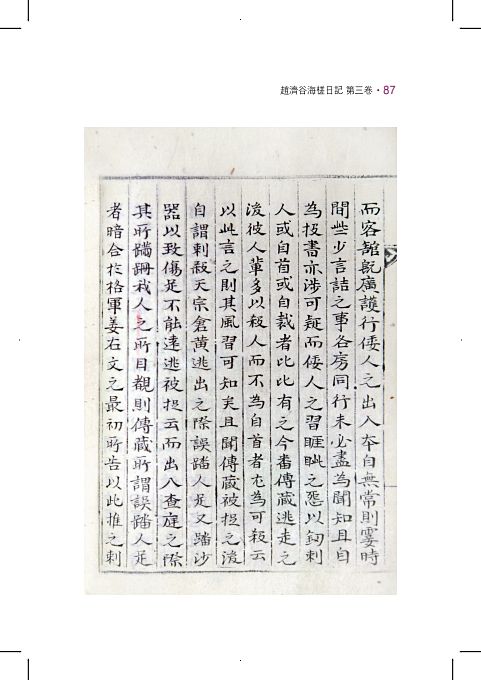 趙濟谷海槎日記 第三卷 · 87
而客舘旣廣護行倭人之出入本自無常則霎時
間些少言詰之事各房同行未必盡為聞知且自
為投書亦涉可疑而倭人之習睚眦之怨以釰刺
人或自首或自裁者比比有之今番傳藏逃走之
後彼人輩多以殺人而不為自首者尤為可殺云
以此言之則其風習可知矣且聞傳藏被捉之後
自謂刺殺天宗倉黃逃出之際誤踏人足又踏沙
器以致傷足不能遠逃被捉云而出入查庭之際
其所蹣跚我人之所目覩則傳藏所謂誤踏人足
者暗合於格軍姜右文之最初所告以此推之刺